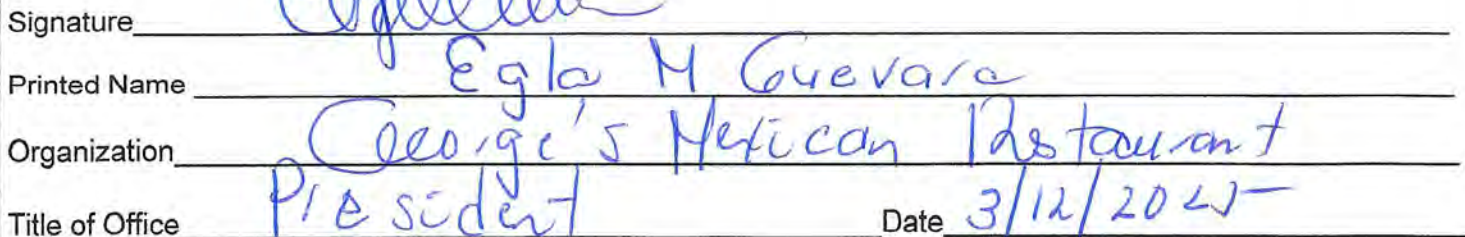 Signature
Printed Name Egla M Guevara
Organization George's Mexican Restaurant
Title of Office President Date 3/12/2025